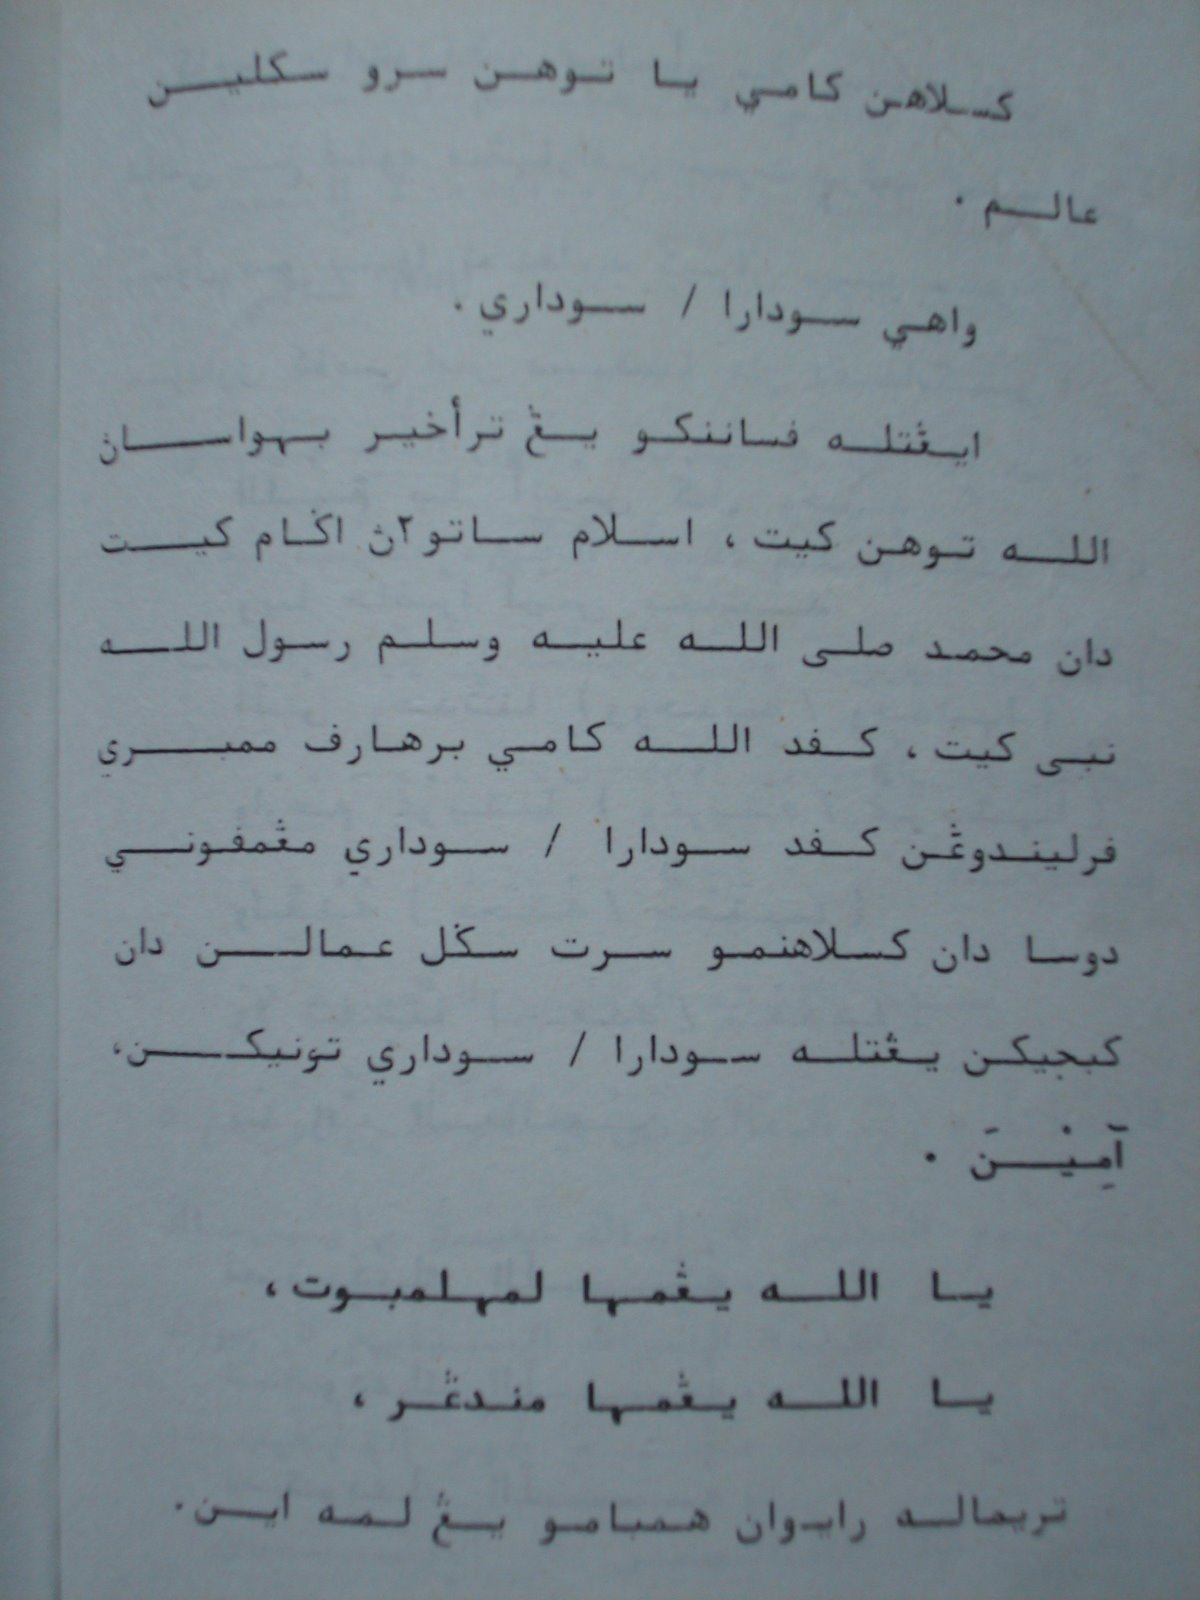 کسلاهن کامي يا توهن سرو سکلين
عالم .
واهي سودارا / سوداري .
ايڠتله فساننکو يڠ ترأخير بهواساڽ
الله توهن کيت ، اسلام ساتو٢ڽ اݢام کيت
دان محمد صلى الله عليه وسلم رسول الله
نبى کيت ، کفد الله کامي برهارف ممبري
فرليندوڠن کفد سودارا / سوداري مڠمفوني
دوسا دان کسلاهنمو سرت سݢل عمالن دان
کبجيکن يڠتله سودارا / سوداري تونيکن،
آمِيْنَ .
يا الله يڠمها لمهلمبوت ،
يا الله يڠمها مندڠر ،
تريماله رايوان همبامو يڠ لمه اين .